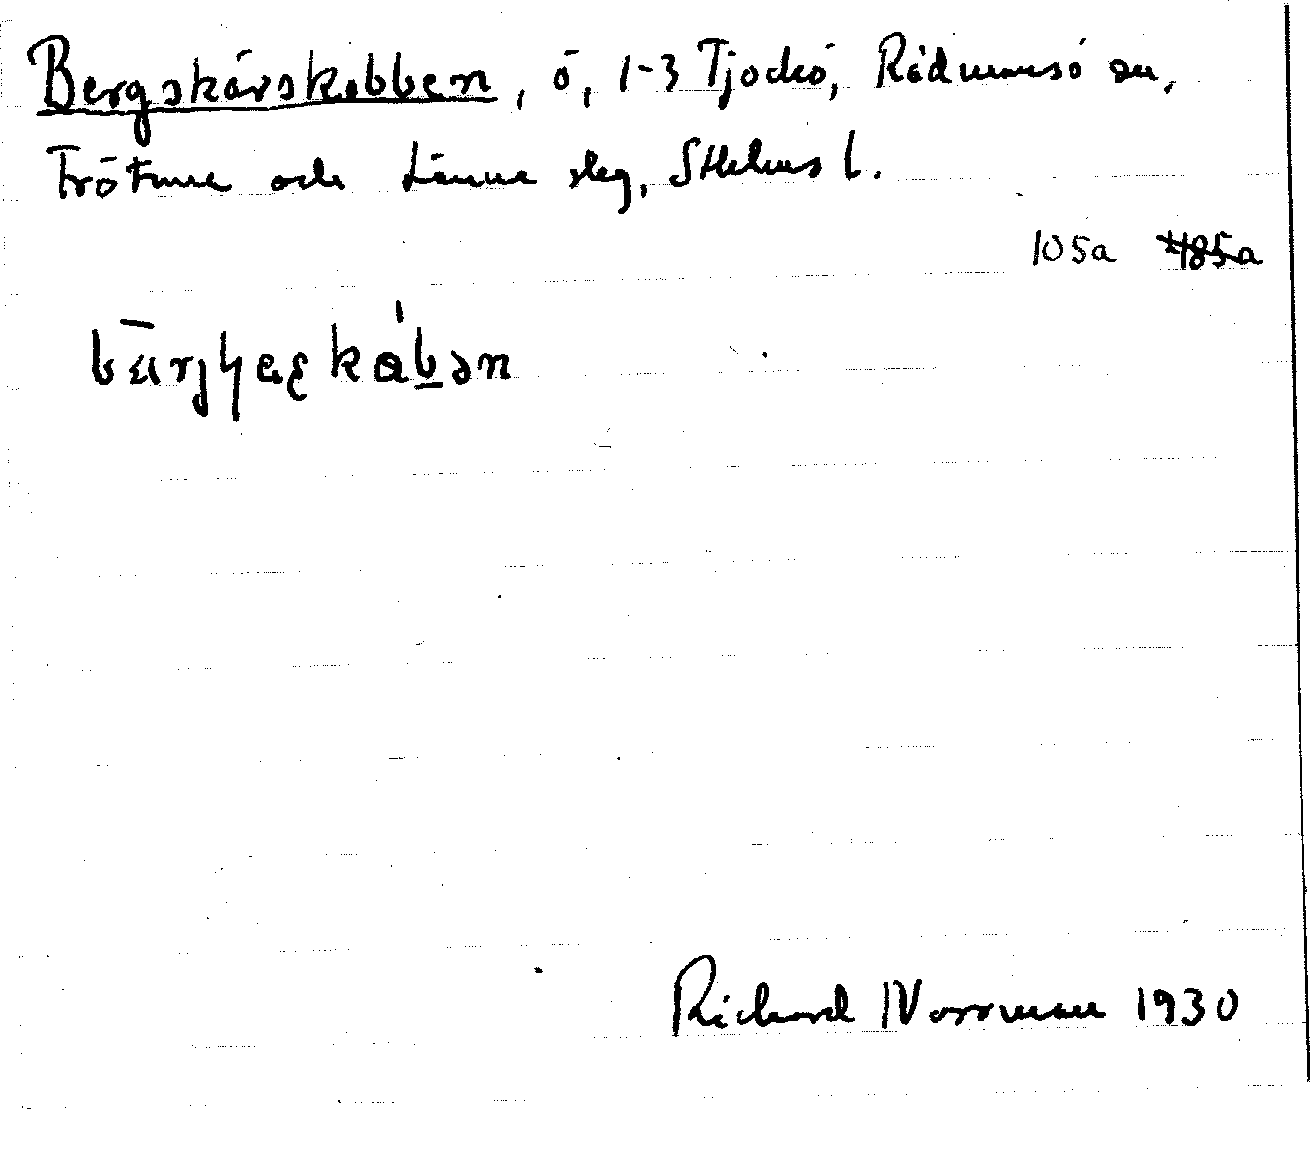 Bergskärskobben, ö, 1-3 Tjockö, Rådmansö sn,
Frötuna och Länna slg, Sthlms l.
105a 485a
Richard Norrman 1930